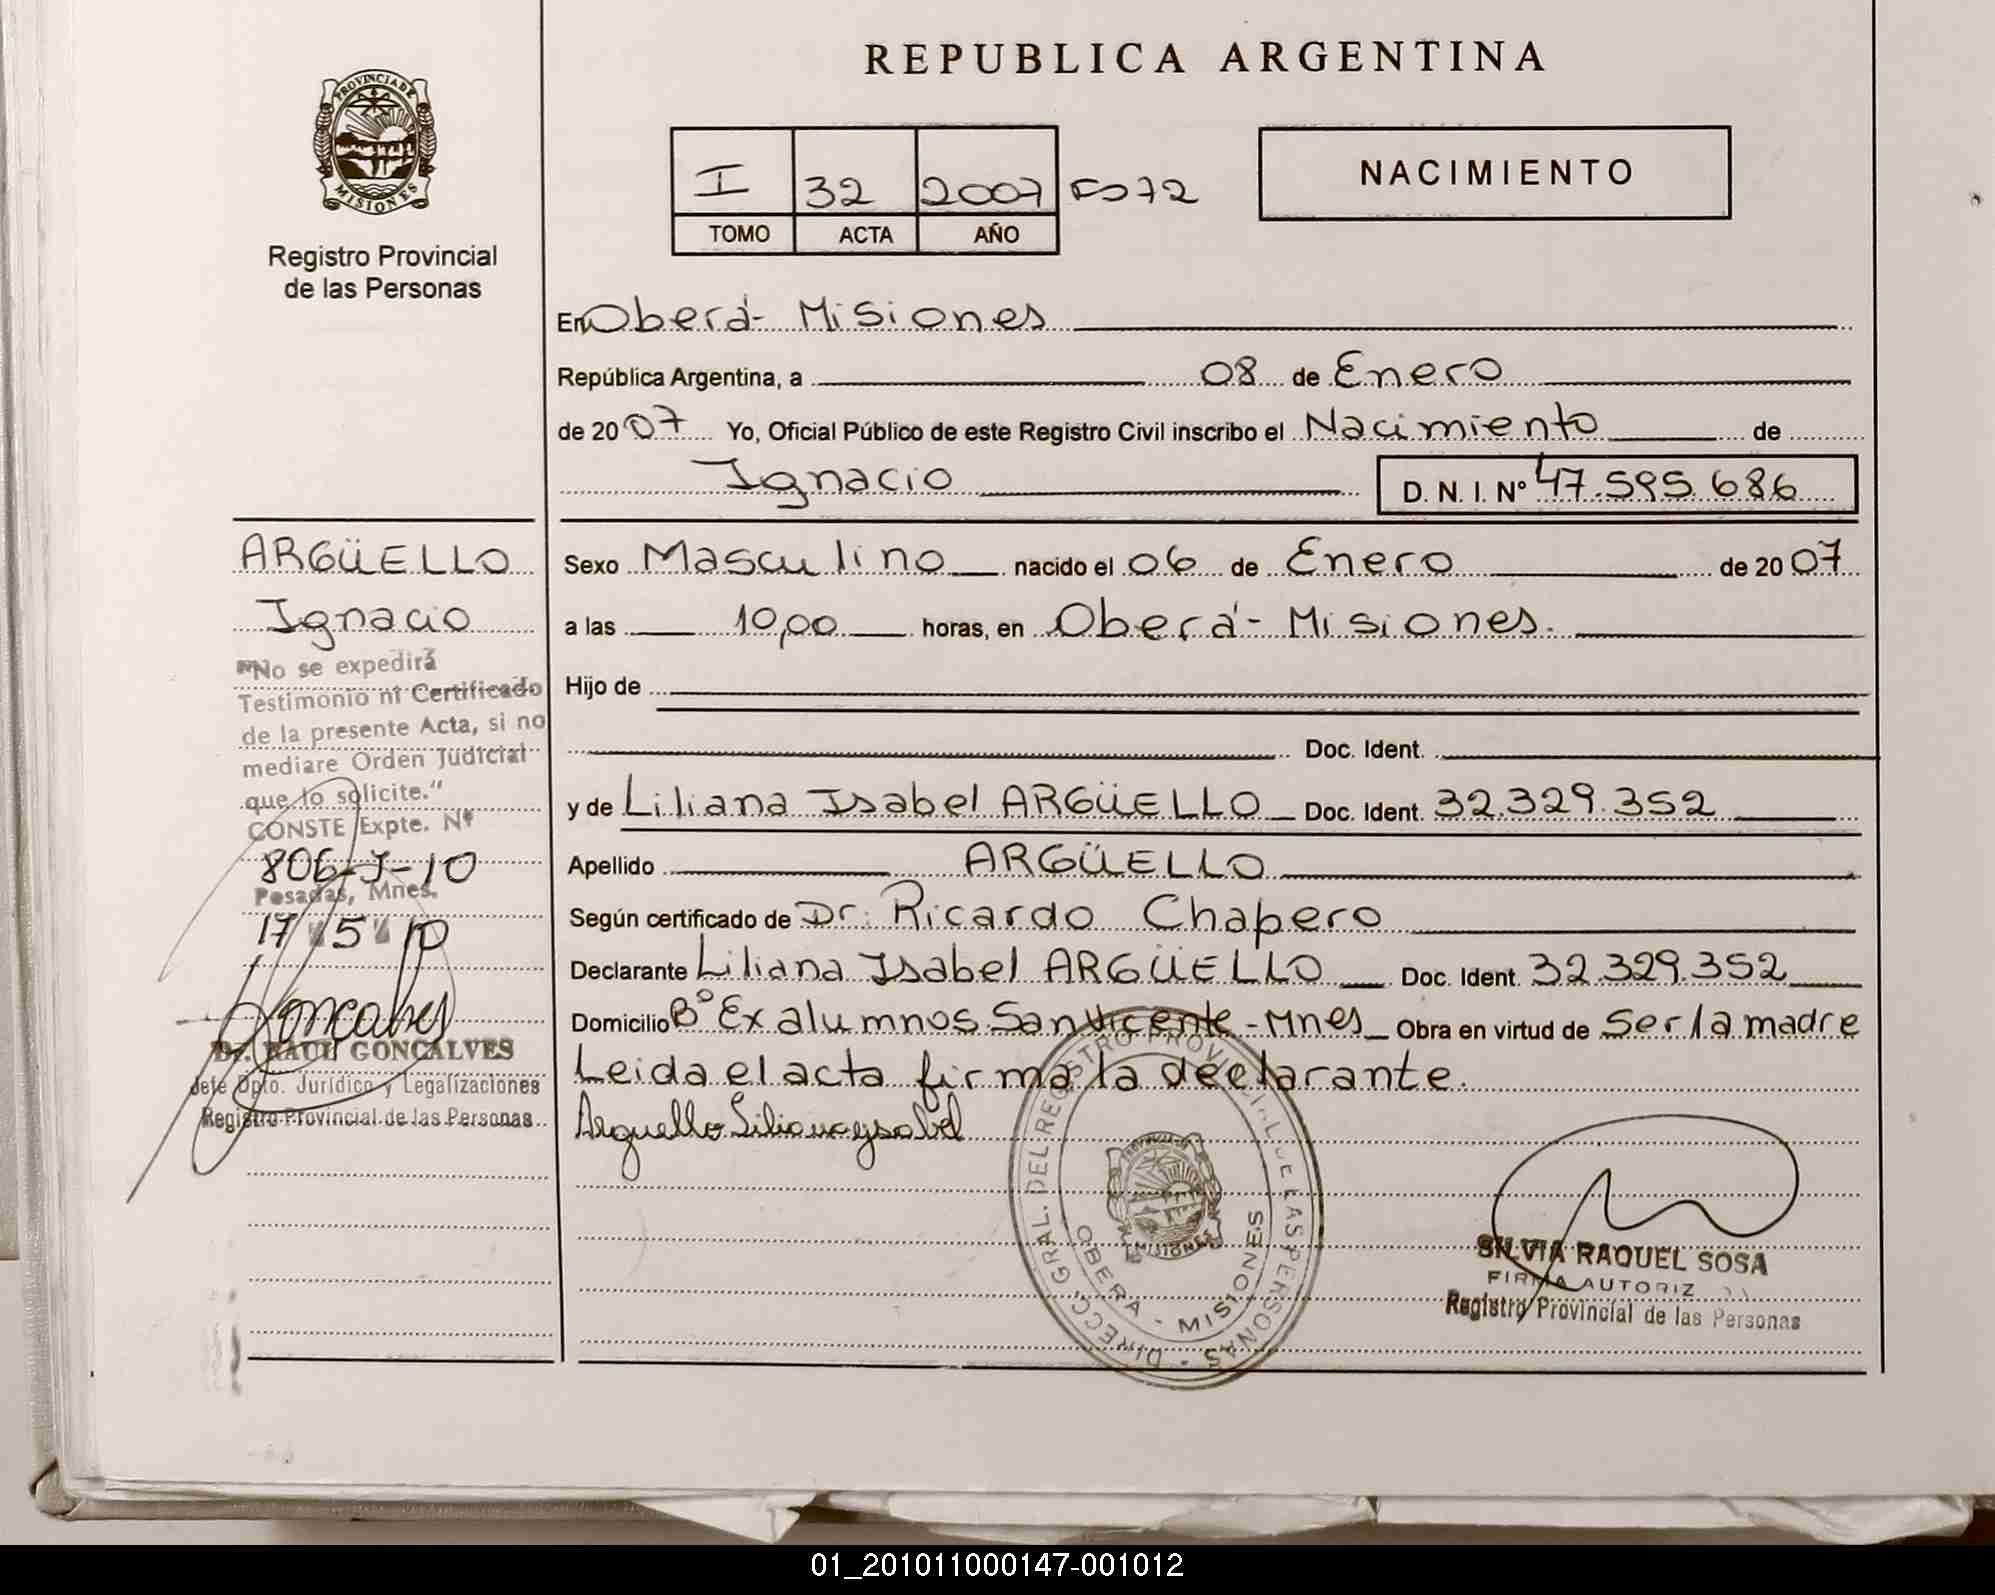 REPUBLICA ARGENTINA
PROVINCIA DE
MISIONES
Registro Provincial
de las Personas
I 32 2007 Fº 72
TOMO ACTA AÑO
NACIMIENTO
En Oberá - Misiones
República Argentina, a 08 de Enero
de 2007 Yo, Oficial Público de este Registro Civil inscribo el Nacimiento de
Ignacio D. N. I. Nº 47.595.686
ARGÜELLO
Ignacio
"No se expedirá
Testimonio ni Certificado
de la presente Acta, si no
mediare Orden Judicial
que lo solicite."
CONSTE Expte. Nº
806-J-10
Posadas, Mnes.
17 5 10
Goncalves
Dr. RAUL GONCALVES
Jefe Dpto. Jurídico y Legalizaciones
Registro Provincial de las Personas
Sexo Masculino nacido el 06 de Enero de 2007
a las 10,00 horas, en Oberá - Misiones.
Hijo de
Doc. Ident.
y de Liliana Isabel ARGÜELLO Doc. Ident. 32.329.352
Apellido ARGÜELLO
Según certificado de Dr. Ricardo Chapero
Declarante Liliana Isabel ARGÜELLO Doc. Ident. 32.329.352
Domicilio Bº Ex alumnos San Vicente - Mnes Obra en virtud de Ser la madre
Leida el acta firma la declarante.
Arguello Liliana ysabel
DIRECC. GRAL. DEL REGISTRO PROVINCIAL DE LAS PERSONAS
MISIONES
OBERA - MISIONES
SILVIA RAQUEL SOSA
FIRMA AUTORIZ
Registro Provincial de las Personas
01_201011000147-001012